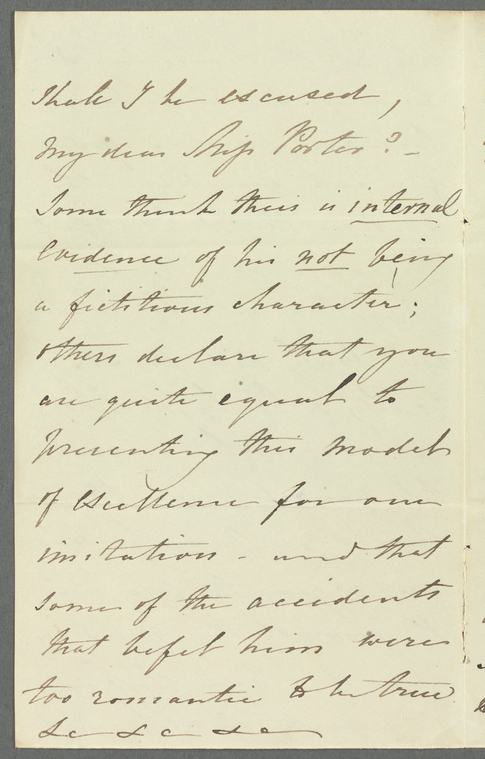 Shall I be excused,
my dear Miss Porter? -
Some think there is internal
Evidence of his not being
a fictitious character;
others declare that you
are quite equal to
presenting this model
of excellence for our
imitation - and that
some of the accidents
that befel him were
too romantic to be true
&c &c &c